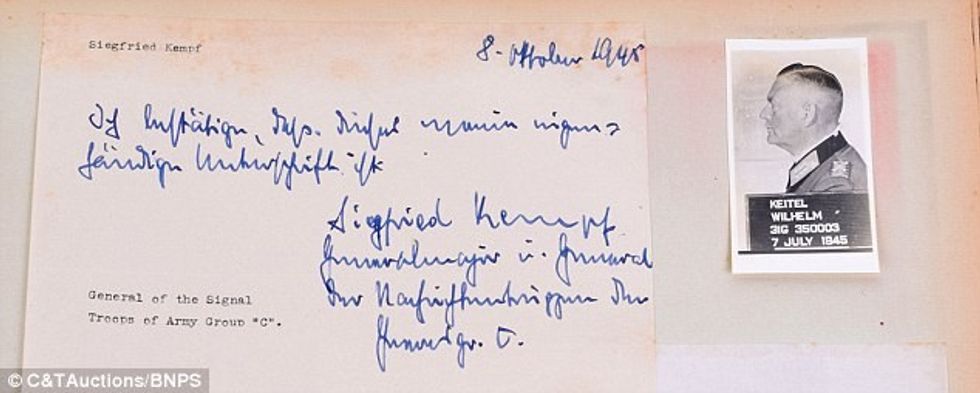 Siegfried Kempf
8. Oktober 1945
Ich bestätige, dass dieses meine eigen=
händige Unterschrift ist
Siegfried Kempf
Generalmajor u. General
der Nachrichtentruppen der
Heeresgr. C.
General of the Signal
Troops of Army Group "C".
KEITEL
WILHELM
31G 350003
7 JULY 1945
© C&TAuctions/BNPS